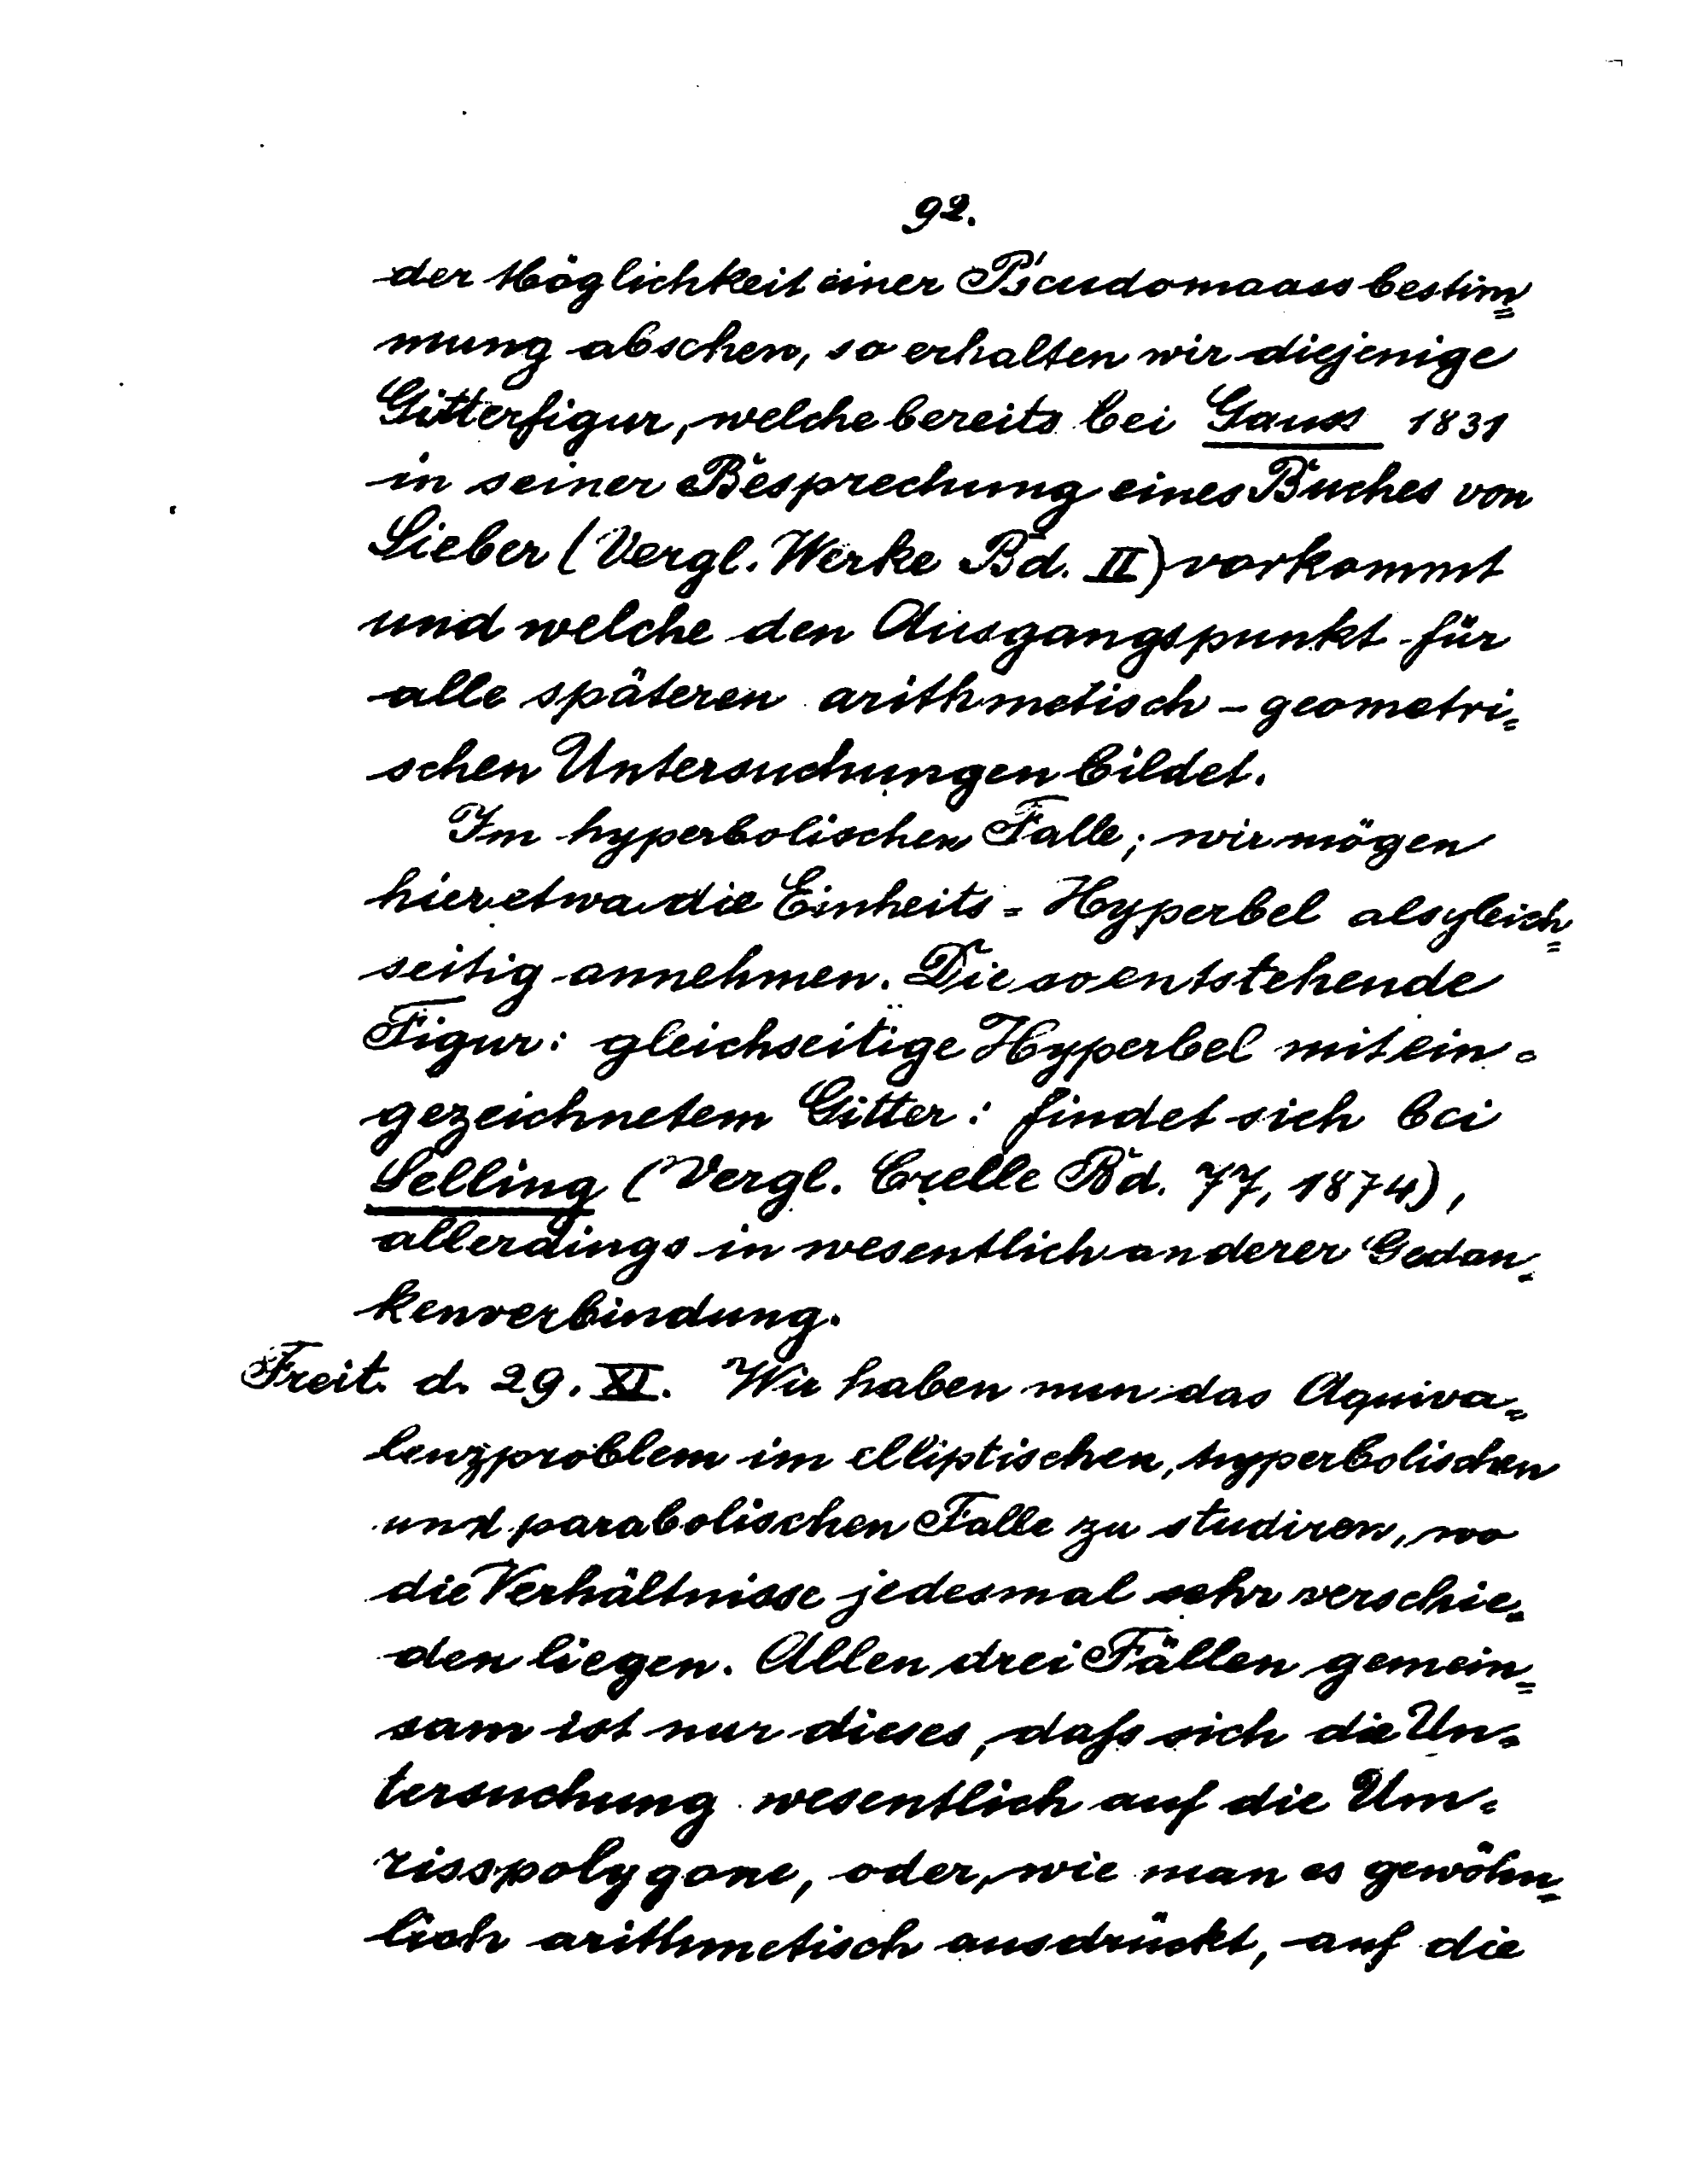 92.
der Möglichkeit einer Pseudomaassbestim=
mung absehen, so erhalten wir diejenige
Gitterfigur, welche bereits bei Gauss 1831
in seiner Besprechung eines Buches von
Sieber (Vergl. Werke Bd. II) vorkommt
und welche den Ausgangspunkt für
alle späteren arithmetisch-geometri=
schen Untersuchungen bildet.
Im hyperbolischen Falle; wir mögen
hier etwa die Einheits=Hyperbel als gleich=
seitig annehmen. Die so entstehende
Figur: gleichseitige Hyperbel mit ein=
gezeichnetem Gitter: findet sich bei
Selling (Vergl. Crelle Bd. 77, 1874),
allerdings in wesentlich anderer Gedan=
kenverbindung.
Freit. d. 29. XI. Wir haben nun das Aquiva=
lenzproblem im elliptischen, hyperbolischen
und parabolischen Falle zu studiren, wo
die Verhältnisse jedesmal sehr verschie=
den liegen. Allen drei Fällen gemein=
sam ist nur dieses, daß sich die Un=
tersuchung wesentlich auf die Um=
risspolygone, oder, wie man es gewöhn=
lich arithmetisch ausdrückt, auf die